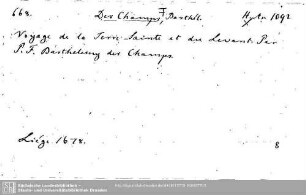 668. Des Champs, F. Barthél. H. As. 1092
Voyage de la Terre Sainte et du Levant. Par
P. F. Barthelemy des Champs.
Liége. 1678. 8
Sächsische Landesbibliothek -
Staats- und Universitätsbibliothek Dresden